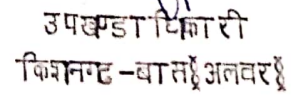 उपखण्डाधिकारी
किशनगढ-बास§अलवर§